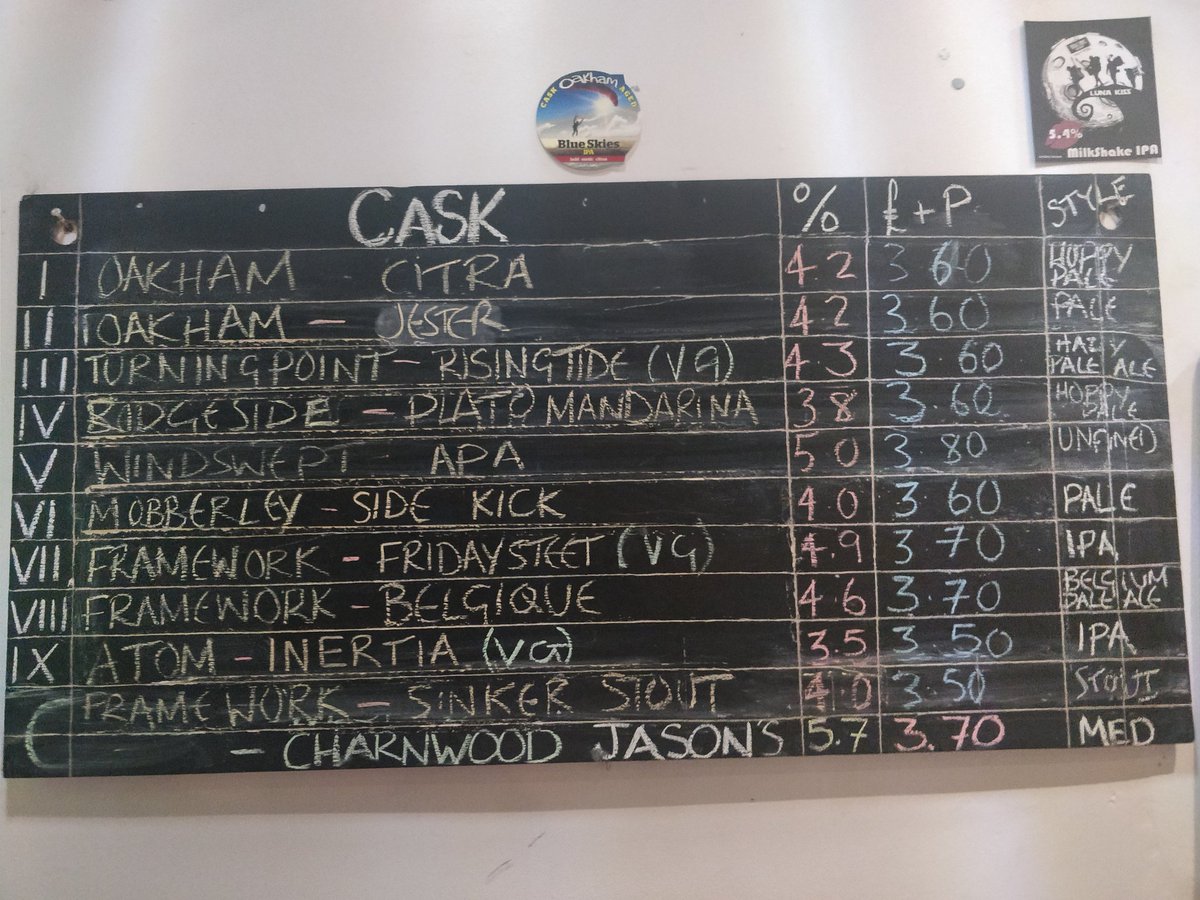 CASK Oakham AGED
Blue Skies
IPA
bold resinic citrus
LUNA KISS
5.4%
MilkShake IPA
CASK % £+P STYLE
I OAKHAM CITRA 4.2 3.60 HOPPY PALE
II OAKHAM - JESTER 4.2 3.60 PALE
III TURNINGPOINT - RISINGTIDE (VG) 4.3 3.60 HAZY PALE ALE
IV BIDGESIDE - PLATO MANDARINA 3.8 3.60 HOPPY PALE
V WINDSWEPT - APA 5.0 3.80 UNFINED
VI MOBBERLEY - SIDE KICK 4.0 3.60 PALE
VII FRAMEWORK - FRIDAYSTEET (VG) 4.9 3.70 IPA
VIII FRAMEWORK - BELGIQUE 4.6 3.70 BELGIUM PALE ALE
IX ATOM - INERTIA (VG) 3.5 3.50 IPA
FRAMEWORK - SINKER STOUT 4.0 3.50 STOUT
- CHARNWOOD JASON'S 5.7 3.70 MED